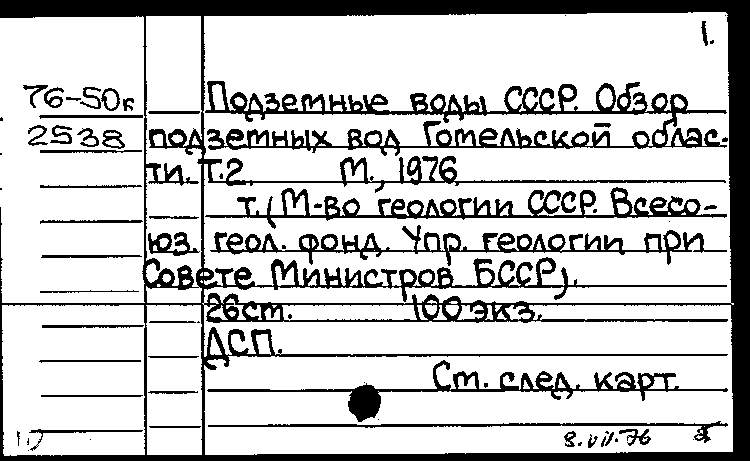 1.
76-50к Подземные воды СССР. Обзор
2538 подземных вод Гомельской облас-
ти. Т.2. М., 1976.
т. (М-во геологии СССР. Всесо-
юз. геол. фонд. Упр. геологии при
Совете Министров БССР).
26 ст. 100 экз.
ДСП.
См. след. карт.
8.VII.76